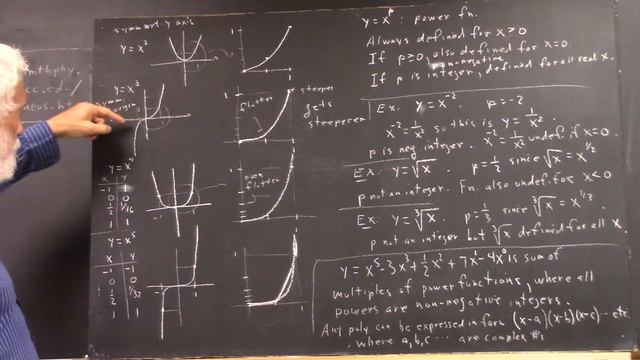 symmetry axis
y = x²
1
1
y = x³
symm
origin
flatter
steeper
gets
steeperer
y = x⁴
x
-1
0 0
½ 1/16
1 1
even
flatter
y = x⁵
x y
-1 -1
0 0
½ 1/32
1 1
y = xᵖ : power fn.
Always defined for x > 0
If p ≥ 0, also defined for x = 0.
If p is non-negative integer, defined for all real x.
Ex. y = x⁻² p = -2
x⁻² = 1/x² so this is y = 1/x².
p is neg integer. x⁻² = 1/x² undef. if x = 0.
Ex. y = √x p = ½ since √x = x^1/2
p not an integer. Fn. also undef. for x < 0
Ex. y = ³√x p = ⅓ since ³√x = x^1/3
p not an integer but ³√x defined for all x.
y = x⁵ - 3x³ + ½x² + 7x - 4x⁰ is sum of
multiples of power functions, where all
powers are non-negative integers.
Any poly can be expressed in form (x-a)(x-b)(x-c)... etc.
where a, b, c ... are complex #'s